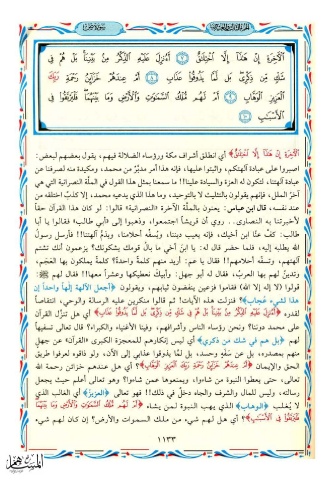 الْآخِرَةِ إِنْ هَٰذَا إِلَّا اخْتِلَاقٌ ۝ أَءُنزِلَ عَلَيْهِ الذِّكْرُ مِن بَيْنِنَا بَلْ هُمْ فِي
شَكٍّ مِّن ذِكْرِي بَل لَّمَّا يَذُوقُوا عَذَابِ ۝ أَمْ عِندَهُمْ خَزَائِنُ رَحْمَةِ رَبِّكَ
الْعَزِيزِ الْوَهَّابِ ۝ أَمْ لَهُم مُّلْكُ السَّمَاوَاتِ وَالْأَرْضِ وَمَا بَيْنَهُمَا فَلْيَرْتَقُوا فِي
الْأَسْبَابِ ۝
الآخِرَةِ إِنْ هَٰذَا إِلَّا اخْتِلَاقٌ﴾ أي انطلق أشراف مكة ورؤساء الضلالة فيهم، يقول بعضهم لبعض:
اصبروا على عبادة آلهتكم، واثبتوا عليها، فإنه هذا أمر مدبَّر من محمد، ومكيدة منه لصرفنا عن
عبادة آلهتنا، لتكون له العزة والسيادة علينا!! ما سمعنا بمثل هذا القول في الملَّة النصرانية التي هي
آخر الملل، فإنهم يقولون بالتثليث لا بالتوحيد، وما هذا الذي يدعيه محمد، إلا كذبٌ اختلقه من
عند نفسه، قال ابن عباس: يعنون بالملَّة الآخرة «النصرانية» قالوا: لو كان هذا القرآن حقاً
لأخبرتنا به النصارى.. روي أن قريشاً اجتمعوا، وذهبوا إلى «أبي طالب» فقالوا يا أبا
طالب: كفَّ عنَّا ابن أخيك، فإنه يعيب ديننا، ويُسفِّه أحلامنا، ويذمُّ آلهتنا!! فأرسل رسولُ
الله يطلبه إليه، فلما حضر قال له: يا ابنَ أخي ما بالُ قومك يشكونك؟ يزعمون أنك تشتم
آلهتهم، وتسفِّه أحلامهم!! فقال يا عم: أريد منهم كلمةً واحدة؟ كلمةً يملكون بها العجَم،
وتدينُ لهم بها العرب، فقال له أبو جهل: وأبيك لنعطيكها وعشراً معها!! فقال لهم ﷺ:
قولوا (لا إله إلا الله) فقاموا فزعين ينفضون ثيابهم، ويقولون ﴿أجعل الآلهة إلهاً واحداً إن
هذا لشيء عُجاب﴾؟ فنزلت هذه الآيات! ثم قالوا منكرين عليه الرسالة والوحي، انتقاصاً
لقدره ﴿أَءُنزِلَ عَلَيْهِ الذِّكْرُ مِن بَيْنِنَا بَلْ هُمْ فِي شَكٍّ مِّن ذِكْرِي بَل لَّمَّا يَذُوقُوا عَذَابِ﴾؟ أي هل تنزَّل القرآن
على محمد دوننا؟ ونحن رؤساء الناس وأشرافهم، وفينا الأغنياء والكبراء؟ قال تعالى تسفيهاً
لهم ﴿بل هم في شك من ذكري﴾ أي ليس إنكارهم للمعجزة الكبرى «القرآن» عن جهلٍ
منهم بمصدره، بل عن سَفَهٍ وحسد، بل لمَّا يذوقوا عذابي إلى الآن، ولو ذاقوه لعرفوا طريق
الحق والإيمان ﴿أَمْ عِندَهُمْ خَزَائِنُ رَحْمَةِ رَبِّكَ الْعَزِيزِ الْوَهَّابِ﴾؟ أي هل عندهم خزائن رحمة الله
تعالى، حتى يعطوا النبوة من شاءوا، ويمنعوها عمن شاءوا؟ وهو تعالى أعلم حيث يجعل
رسالته، وليس للمال والشرف والجاه دخلٌ في ذلك!! فهو تعالى ﴿العزيز﴾ أي الغالب الذي
لا يُغلب ﴿الوهاب﴾ الذي يهب النبوة لمن يشاء ﴿أَمْ لَهُم مُّلْكُ السَّمَاوَاتِ وَالْأَرْضِ وَمَا بَيْنَهُمَا
فَلْيَرْتَقُوا فِي الْأَسْبَابِ﴾؟ أي هل لهم شيء من ملك السموات والأرض؟ إن كان لهم شيء
١١٣٣